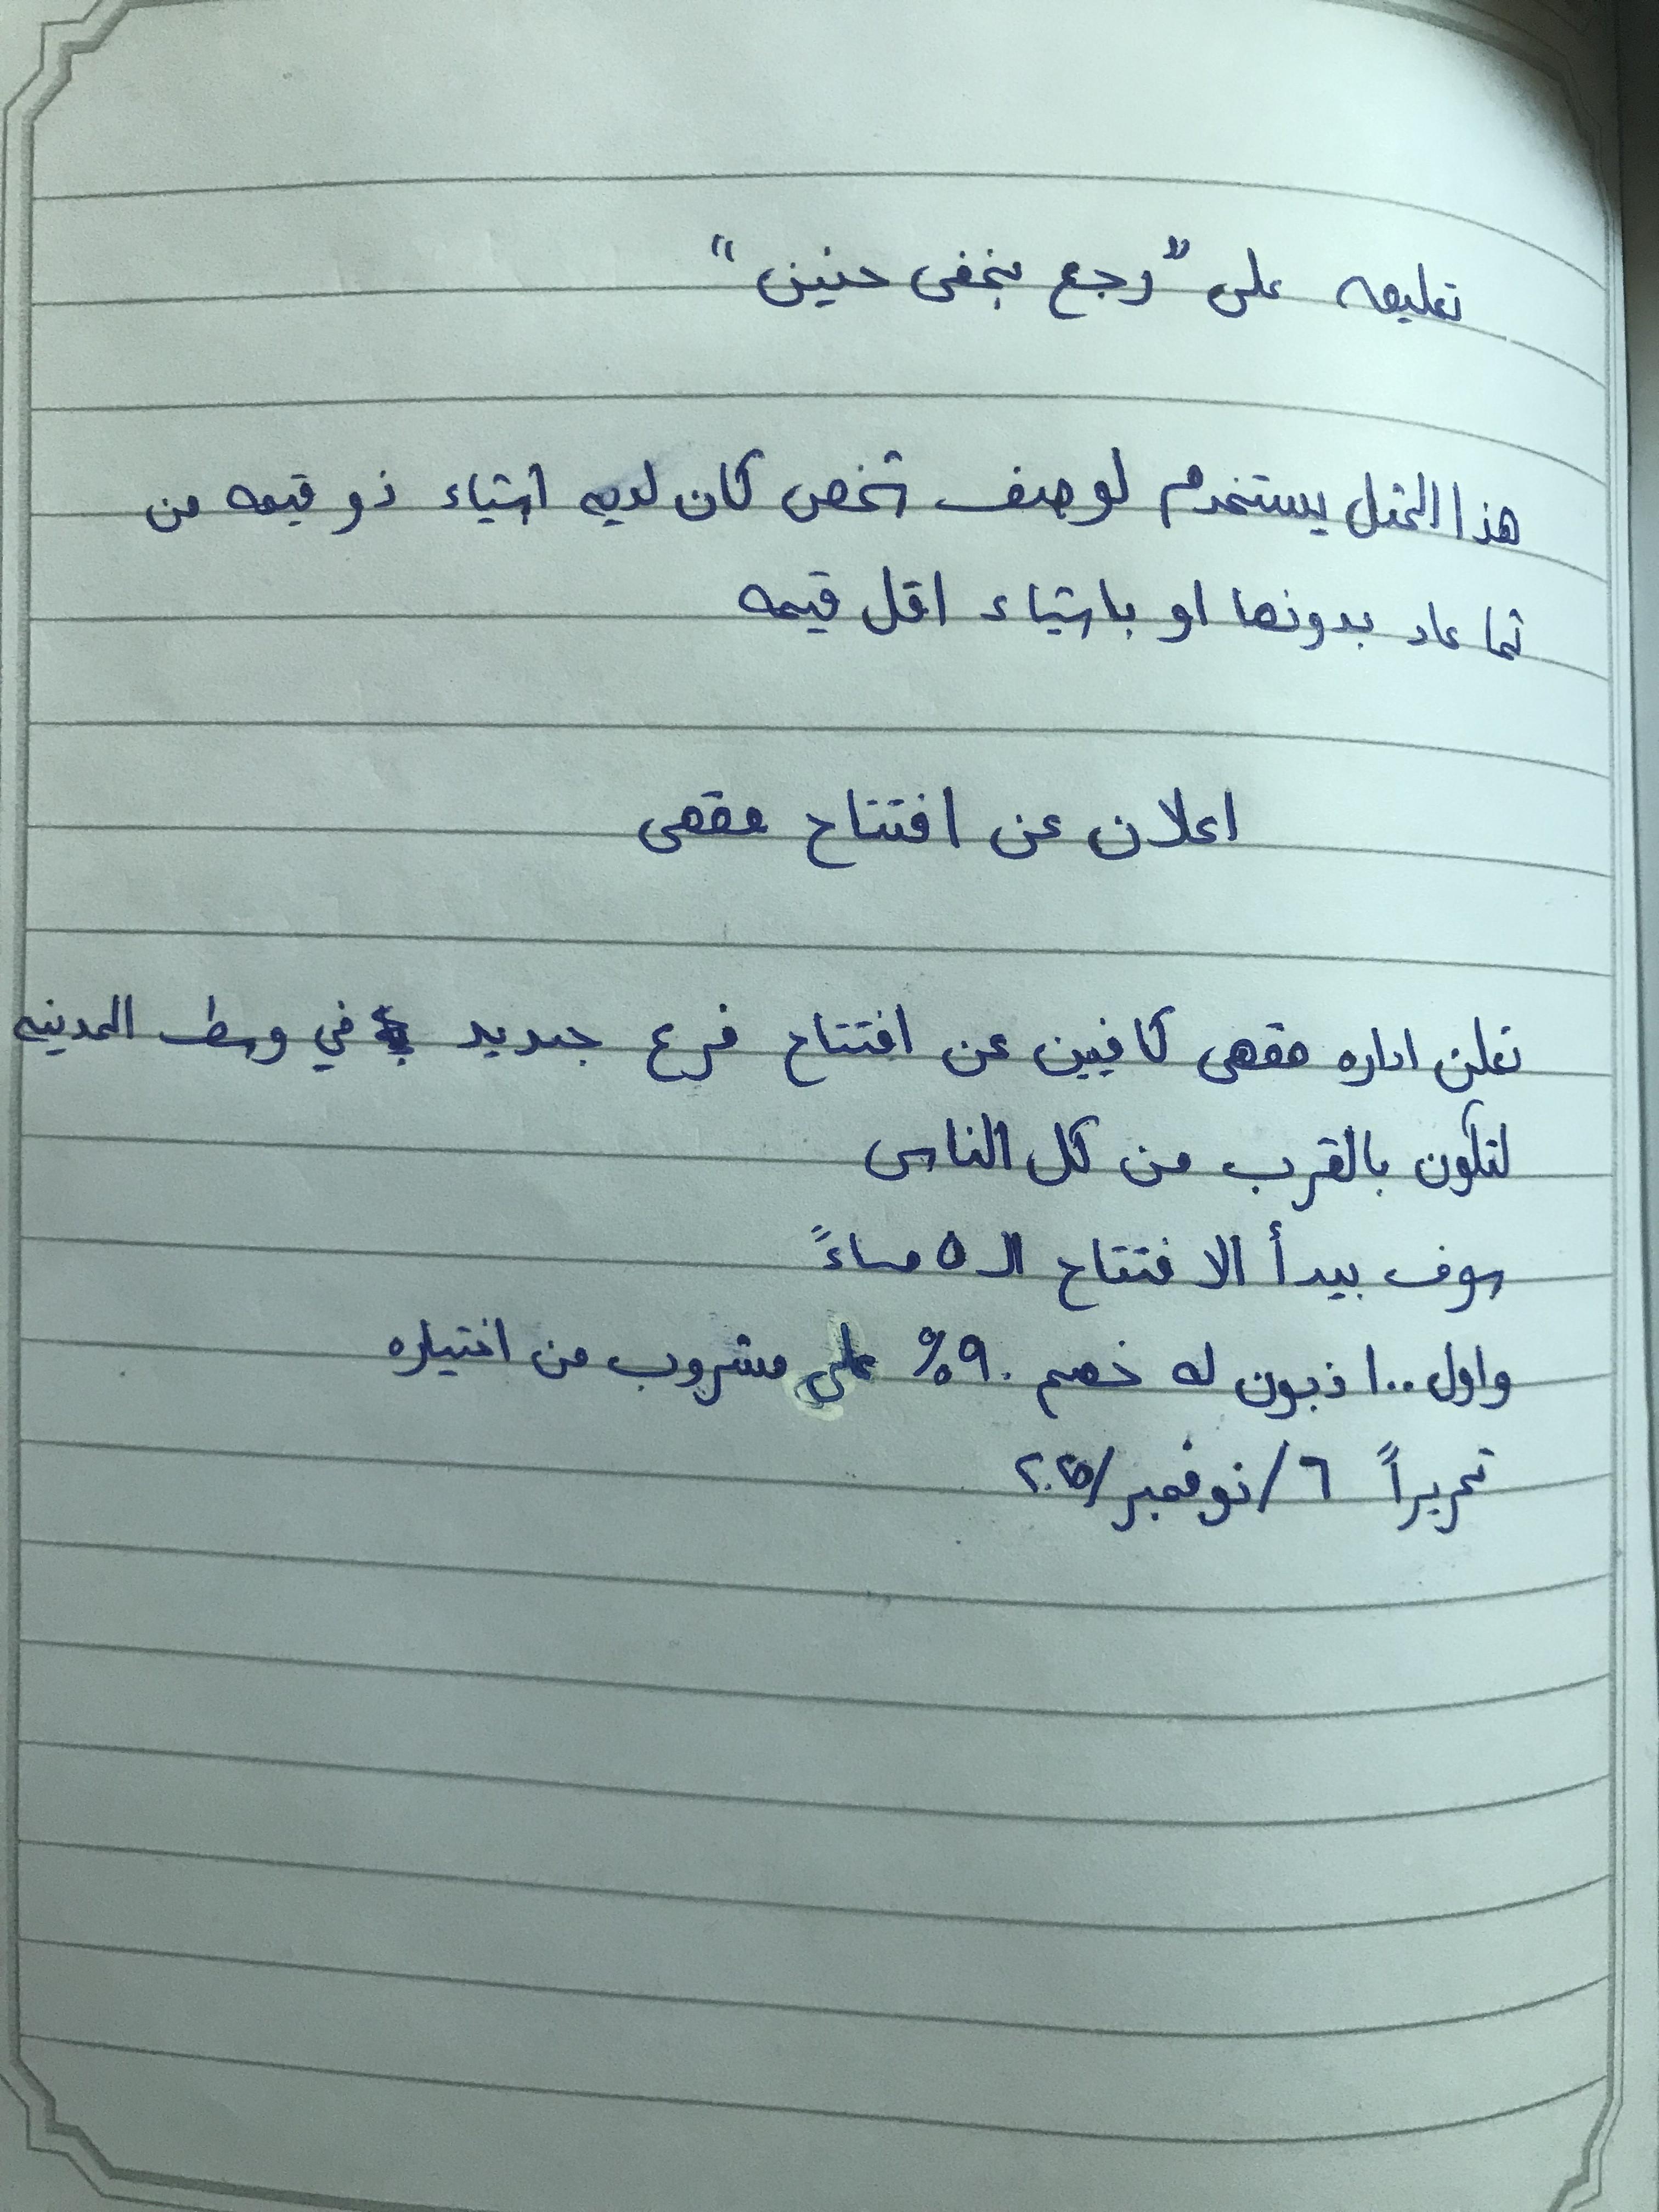 تعليق على "رجع بخفى حنين"
هذا المثل يستخدم لوصف شخص كان لديه اشياء ذو قيمه من
ثما عاد بدونها او باشياء اقل قيمه
اعلان عن افتتاح مقهى
تعلن اداره مقهى كافيين عن افتتاح فرع جديد في وسط المدينه
لتكون بالقرب من كل الناس
سوف يبدأ الافتتاح الـ ٥ مساءً
واول ١٠٠ زبون له خصم ٩٠% على مشروب من اختياره
تحريراً ٦/نوفمبر/٢٠٢٥